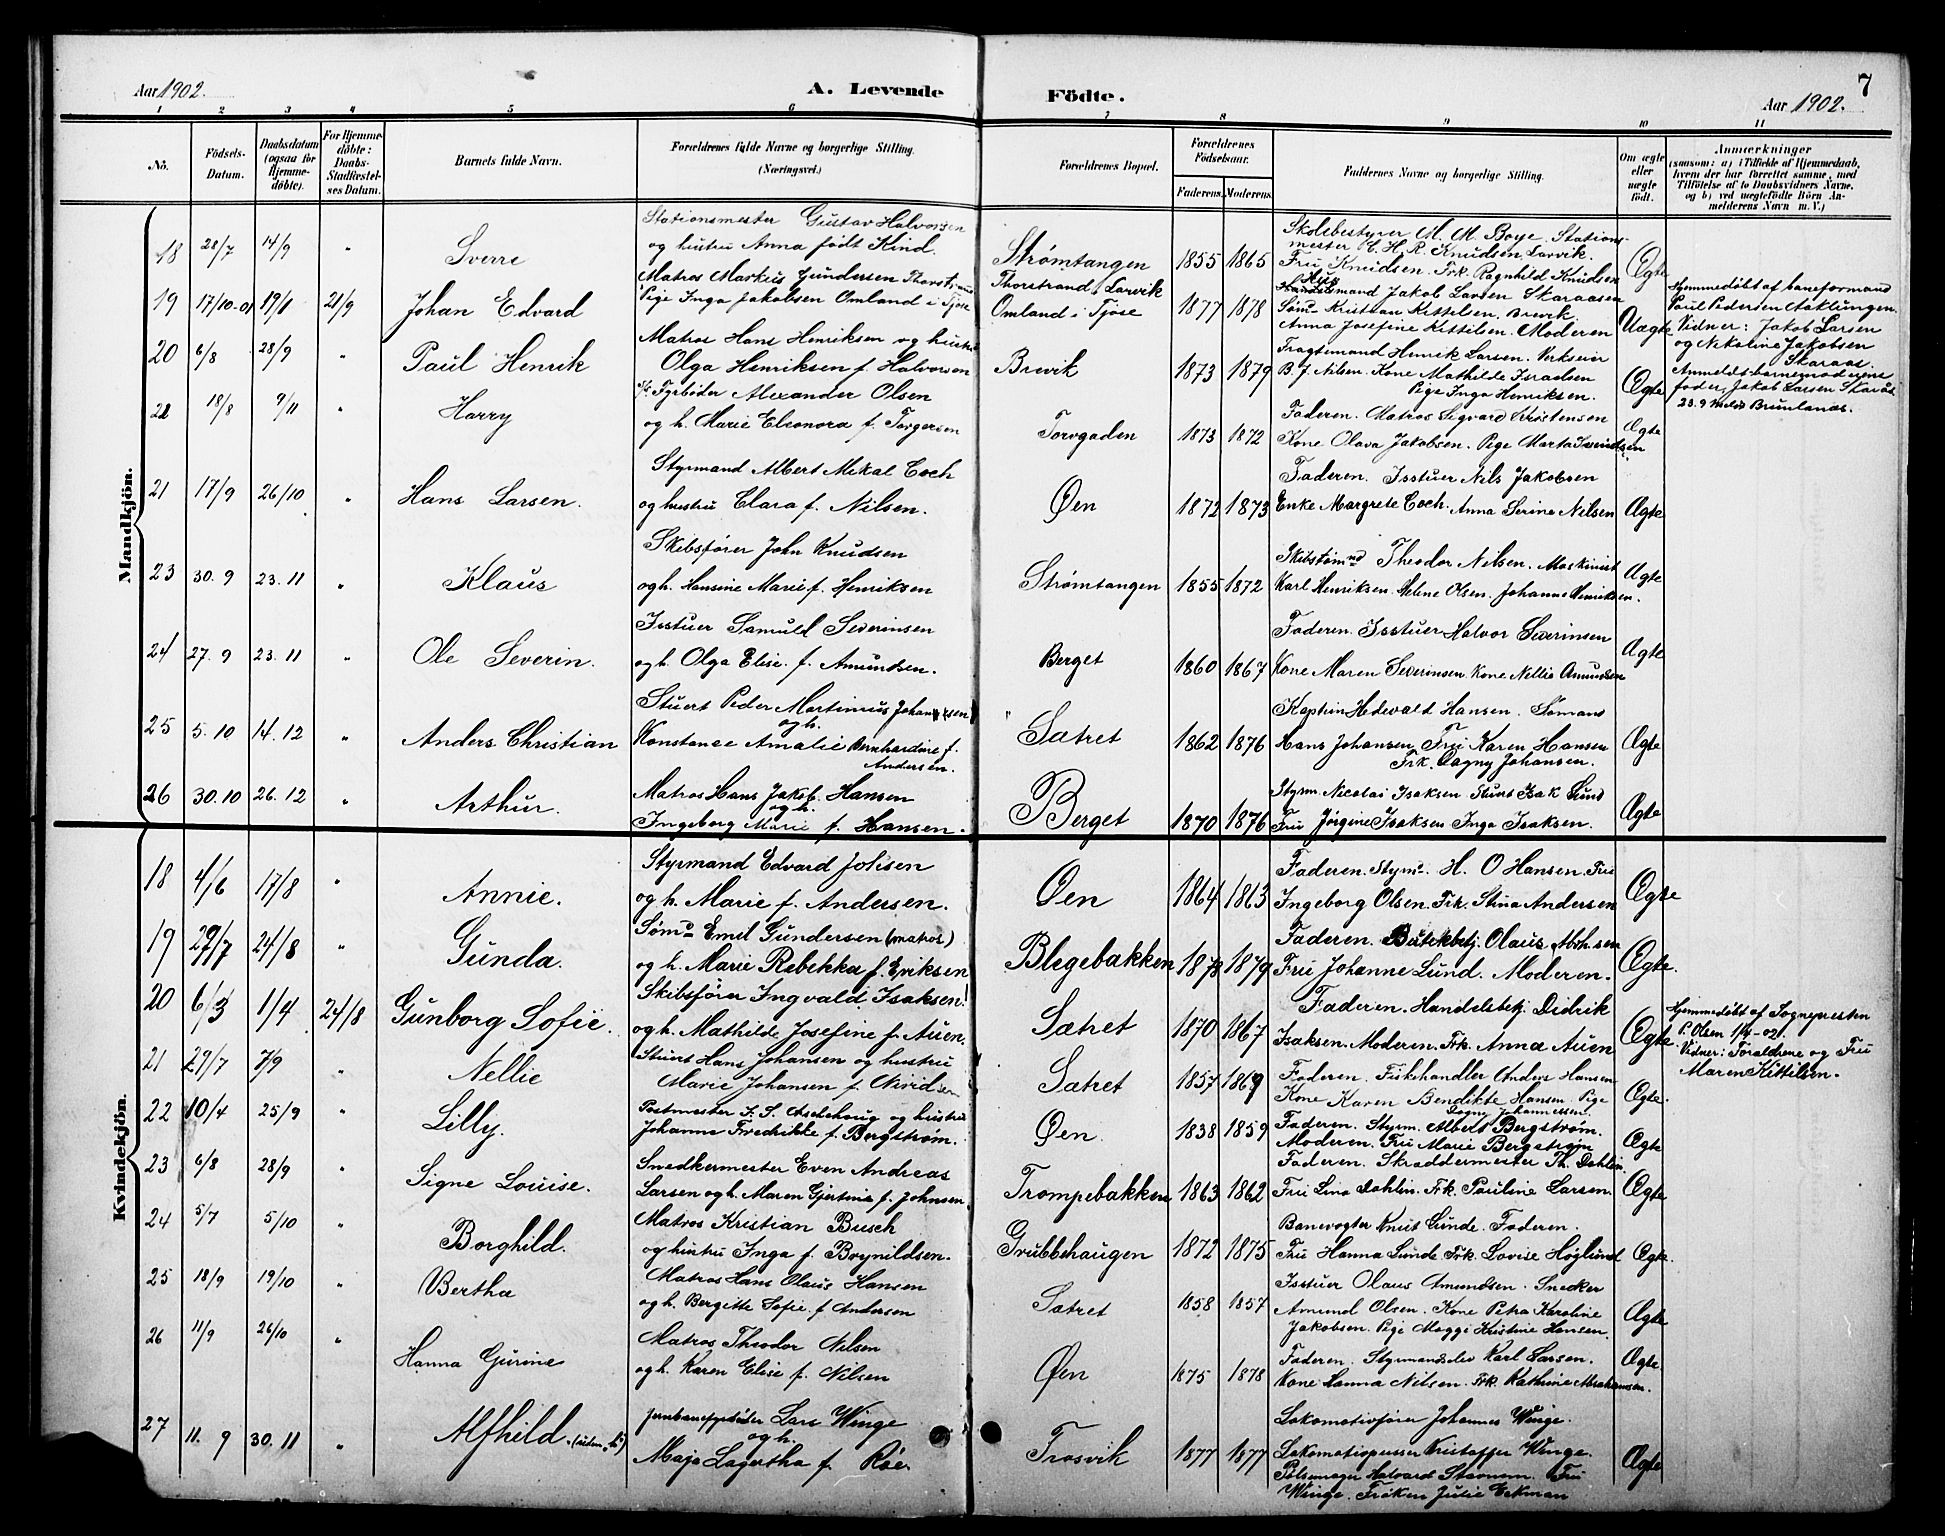 Aar 1902. A. Levende Födte. Aar 1902. 7
1 2 3 4 5 6 7 8 9 10 11
No. Födsels-Datum. Daabsdatum (ogsaa for Hjemmedöbte). For Hjemmedöbte: Daabs-Stadfæstelses Datum. Barnets fulde Navn. Forældrenes fulde Navne og borgerlige Stilling. (Næringsvei.) Forældrenes Bopæl. Forældrenes Födselsaar. Faderens. Moderens. Faddernes Navne og borgerlige Stilling. Om ægte eller uægte født. Anmærkninger (saasom: a) i Tilfælde af Hjemmedaab, hvem der har forrettet samme, med Tilföielse af to Daabsvidners Navne, og b) ved uægtefödte Börn Anmelderens Navn m. V.)
Mandkjön.
18 28/7 14/9 " Sverre
Stationsmester Gustav Halvorsen
og hustru Anna født Kind.
Strømtangen 1855 1865
Skolebestyrer M. M. Boye. Stations-
mester C. H. R. Knudsen Larvik.
Fru Knudsen. Frk. Ragnhild Knudsen
Ægte
19 17/10-01 19/1 21/9 Johan Edvard
Matros Markus Gundersen
Pige Inga Jakobsen Omland i Tjøse
Thorstrand, Larvik
Omland i Tjøse 1877 1878
Husmand Jakob Larsen Skaraasen
Søm. Kristian Kittilsen. Brevik.
Anna Josefine Kittilsen. Moderen
Uægte
Hjemmedöbt af baneformand
Paul Pedersen Aaklungen.
Vidner: Jakob Larsen
og Nikoline Jakobsen
Skaraas.
Anmeldt barnemoderens
fader, Jakob Larsen Skaraas
20 6/8 28/9 " Paul Henrik
Matros Hans Henriksen og hustru
Olga Henriksen f. Halvorsen
Brevik 1873 1879
Fragtemand Henrik Larsen.
B. J. Nilsen. Kone Mathilde Israelsen
Pige Inga Henriksen.
Ægte
23.9 Brunlanæs.
18/8 9/11 " Harry
Fyrbøder Alexander Olsen
og h. Marie Eleonora f. Torgersen
Torvgaden 1873 1872
Faderen. Matros Sigvard
Kone Olava Jakobsen. Pige Marta
Ægte
21 17/9 26/10 " Hans Larsen.
Styrmand Albert Mikal Coch
og hustru Clara f. Nilsen.
Øen 1872 1873
Faderen. Isstuer Nils Jakobsen
Enke Margrete Coch. Anna Serine Nilsen
Ægte
23 30.9 23.11 " Klaus
Skibsfører John Knudsen
og h. Hansine Marie f. Henriksen
Strømtangen 1855 1872
Theodor Nilsen. Maskinist
Karl Henriksen. Helene Olsen. Johanne Henriksen.
Ægte
24 27.9 23.11 " Ole Severin.
Isstuer Samuel Severinsen
og h. Olga Elise f. Amundsen.
Berget 1860 1867
Faderen. Isstuer Halvor Severinsen
Kone Maren Severinsen. Kone Nellie Amundsen
Ægte
25 5.10 14.12 " Anders Christian
Stuert Peder Martinius Johansen
og h.
Konstance Amalie Bernhardine f.
Andersen.
Sætret 1862 1876
Kaptein Hansen. Sømand
Hans Johansen. Fru Karen Hansen
Frk. Dagny Johansen.
Ægte
26 30.10 26.12 " Arthur.
Matros Hans Jakob Hansen
og h.
Ingeborg Marie f. Hansen.
Berget 1870 1876
Styrm. Nicolai Isaksen. Stuert Isak Lund
Fru Jørgine Isaksen Inga Isaksen.
Ægte
Kvindekjön.
18 4/6 17/8 " Annie.
Styrmand Edvard
og h. Marie f. Andersen.
Øen 1864 1863
Faderen. Styrm. H. O Hansen. Fru
Ingeborg Olsen. Frk. Stina Andersen
Ægte
19 24/8 " Gunda.
Emil Gundersen (matros)
og h. Marie Rebekka f. Eriksen
Blegebakken 1878 1879
Faderen. Olaus
Fru Johanne Lund. Moderen.
Ægte.
20 6/3 1/4 24/8 Gunborg Sofie.
Skibsfører Ingvald Isaksen
og h. Mathilde Josefine f. Auen.
Sætret 1870 1867
Faderen. Handelsbetj. Didrik
Isaksen. Moderen. Frk. Anna Auen
Ægte.
Hjemmedöbt af Sognepresten
P. Olsen 1/4-02.
Vidner: Forældrene og Fru
Maren Kittilsen.
21 29/7 7/9 " Nellie
Stuert Hans Johansen og hustru
Marie Johansen f.
Sætret 1857
Faderen. Fiskehandler Anders Hansen
Kone Karen Bendikte Hansen. Pige
Dagny Johannessen.
Ægte.
22 10/4 25/9 " Lilly.
Postmester Aschehoug og hustru
Johanne Fredrikke f. Bergstrøm.
Øen. 1838 1859
Faderen. Styrm. Albert Bergstrøm.
Moderen. Fru Marie Bergstrøm
Ægte
23 6/8 28/9 " Signe Louise.
Snedkermester Even Andreas
Larsen og h. Maren Gjertine f. Johnsen.
Trompebakken 1863 1862
Faderen. Skræddermester Th. Dahlin.
Fru Lina Dahlin. Frk. Pauline Larsen.
Ægte
24 5/7 5/10 " Borghild.
Matros Kristian Busch
og hustru Inga f. Brynildsen.
Grubbehaugen 1872 1875
Banevogter Knut Lunde. Faderen.
Fru Hanna Lunde Frk. Lovise Høglund
Ægte.
25 18/9 19/10 " Bertha
Matros Hans Olaus Hansen
og h. Bergitte Sofie f. Andersen
Sætret 1858 1857
Isstuer Olaus Amundsen. Snedker
Amund Olsen. Kone Petra Karoline
Jakobsen. Pige Maggi Kristine Hansen.
Ægte
26 11/9 26/10 " Hanna Gurine
Matros Theodor Nilsen
og h. Karen Elise f. Nilsen
Øen 1875 1878
Faderen. Styrmandselev Karl Larsen.
Kone Hanna Nilsen. Frk. Kathrine Abrahamsen.
Ægte
27 11.9 30.11 " Alfhild.
Lars Winge
og h.
Maja Lagertha f. Röe.
Trosvik 1877 1877
Lokomotivfører Johannes Winge.
Lokomotivpusser Kristoffer Winge.
Pølsemager Halvard Stavnem. Fru
Winge. Frøken Julie Eckman
Ægte